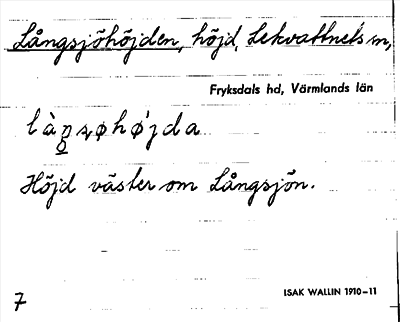 Långsjöhöjden, höjd, Lekvattnets sn,
Fryksdals hd, Värmlands län
Höjd väster om Långsjön.
ISAK WALLIN 1910–11
7